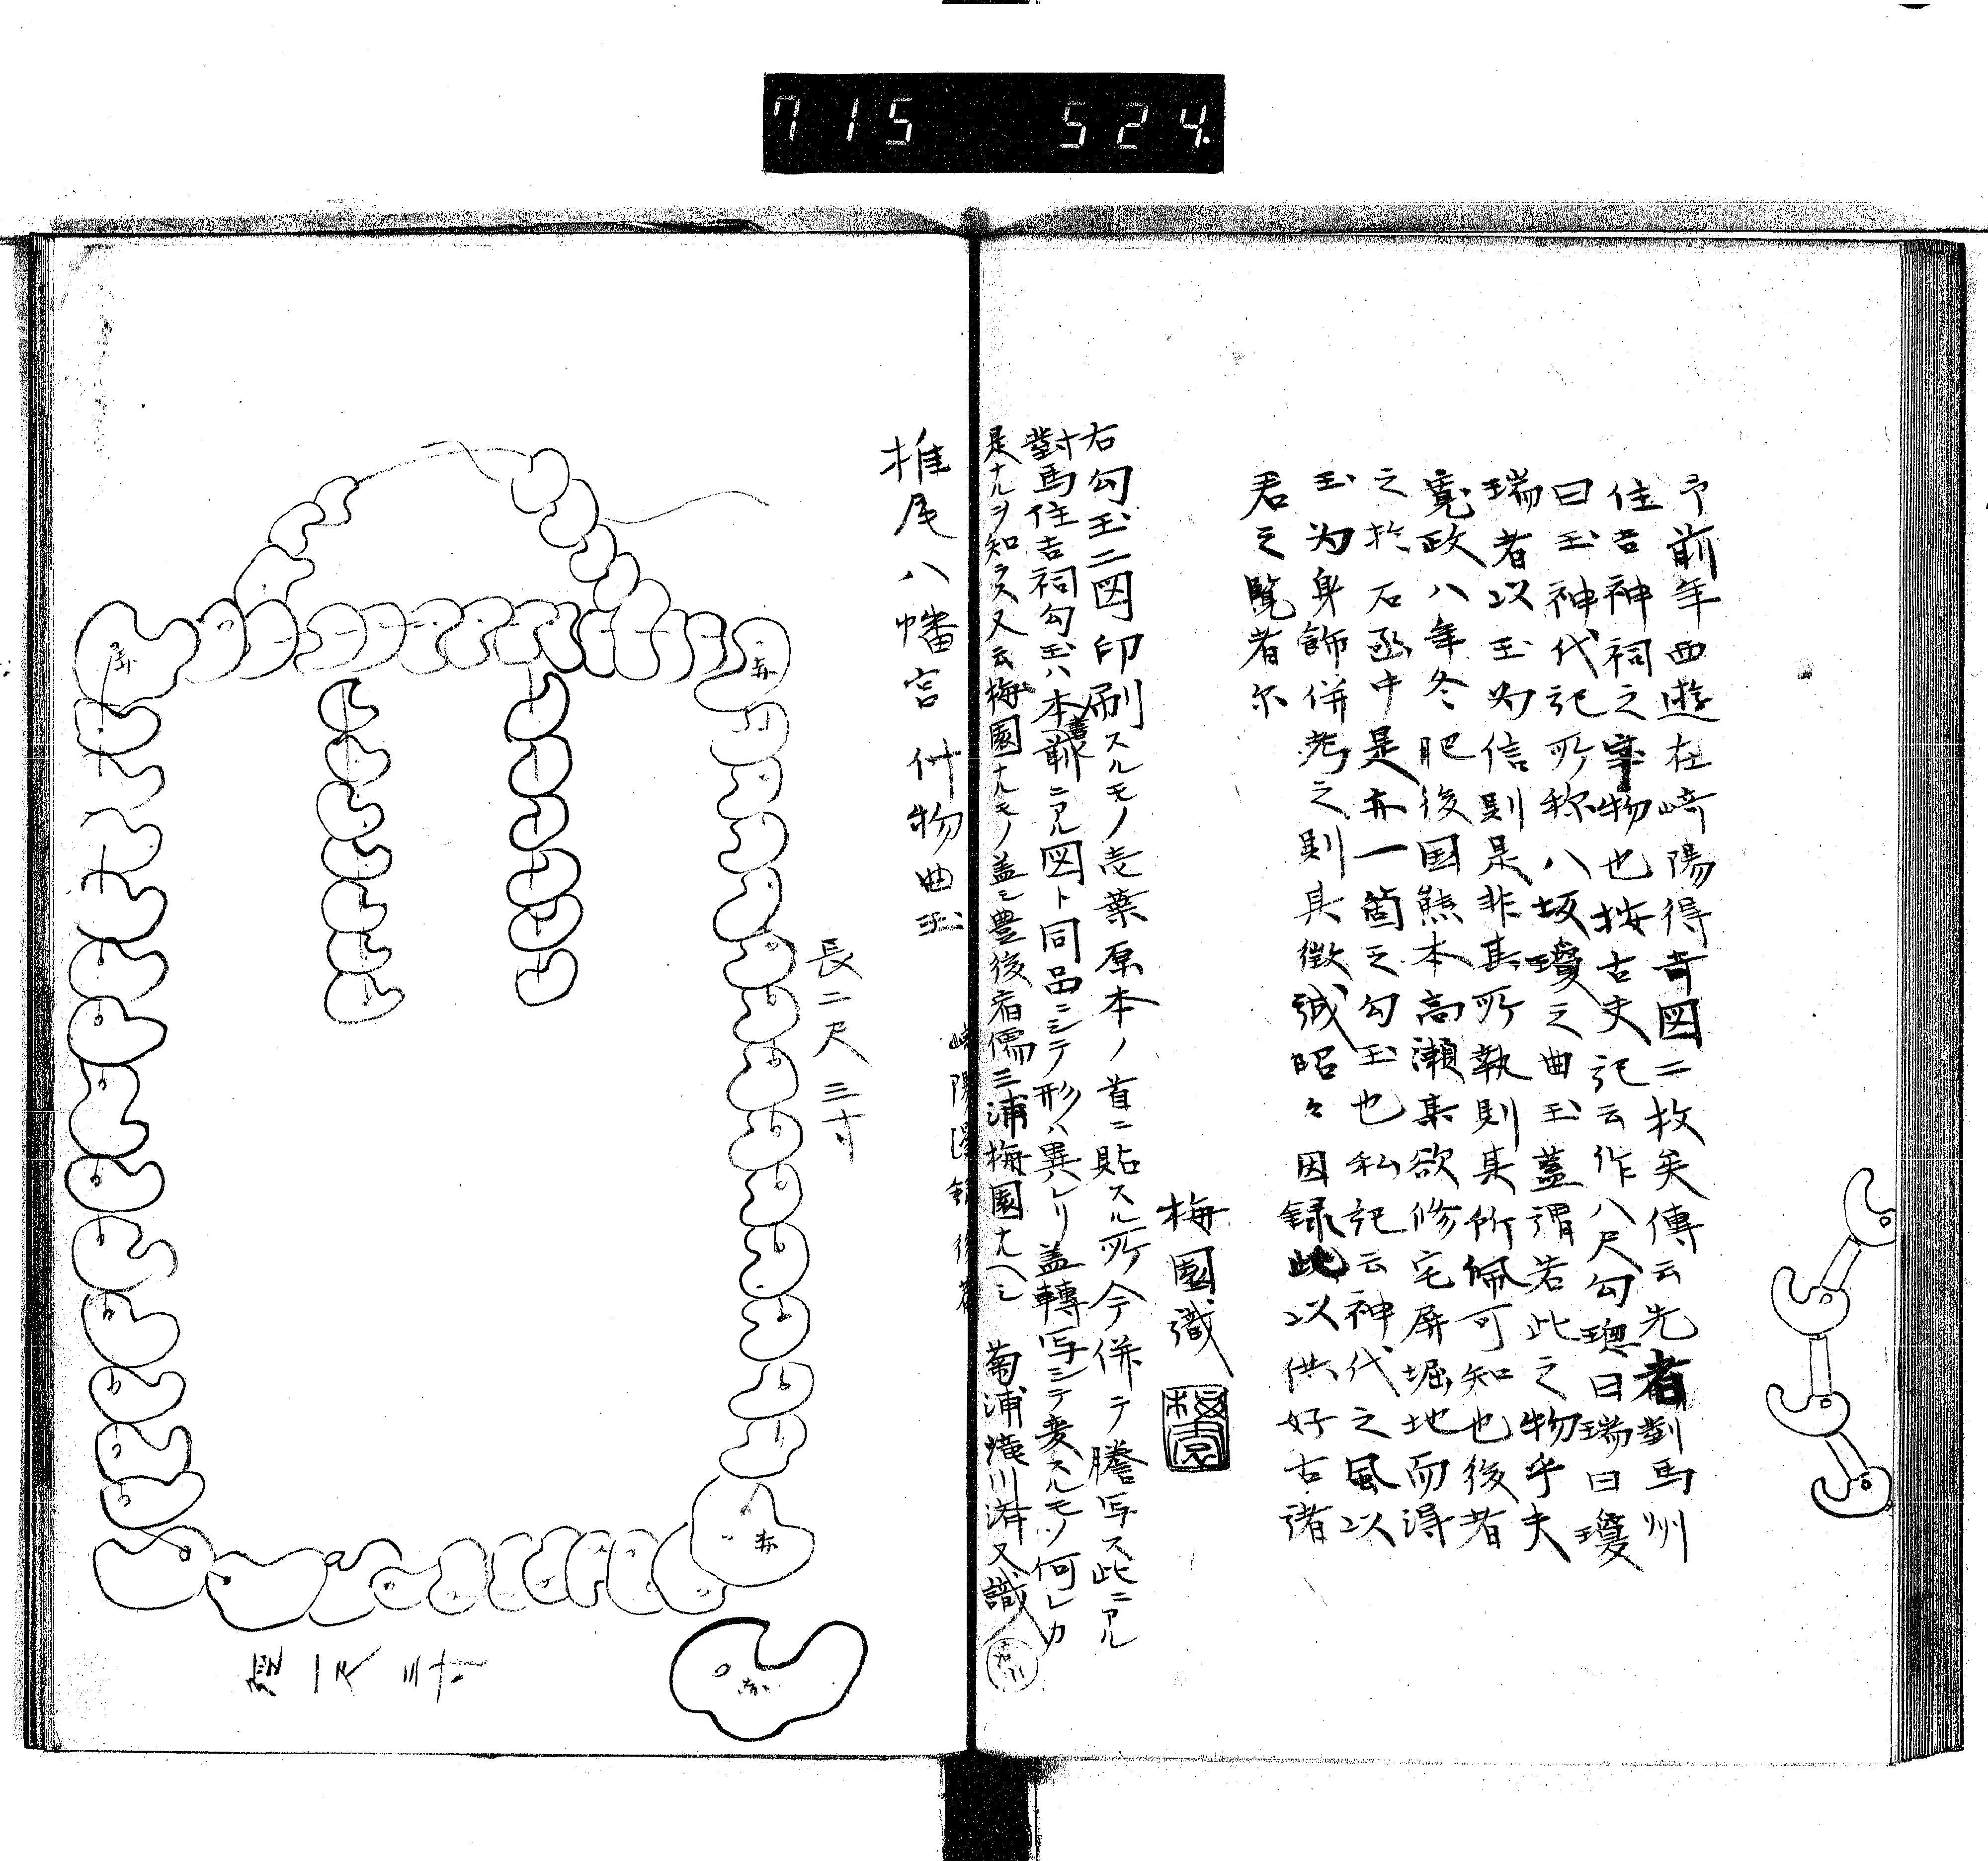 715 524
予前年西遊在崎陽得奇図二枚矣傳云先者對馬州
住吉神祠之宝物也按古史記云作八尺勾璁曰瑞曰瓊
曰玉神代記所称八坂瓊之曲玉蓋謂若此之物乎夫
瑞者以玉為信則是非其所執則其所佩可知也後者
寛政八年冬肥後国熊本高瀬某欲修宅屏堀地而得
之於石函中是亦一箇之勾玉也私記云神代之風以
玉为身飾併考之則具徴誠昭々因録此以供好古諸
君之覧者尓
梅園識
梅園
右勾玉二図印刷スルモノ壱葉原本ノ首ニ貼スル所今併テ謄写ス此ニアル
對馬住吉祠勾玉ハ本書前ニアル図ト同品ニシテ形ハ異レリ蓋轉写シテ変スルモノ何レカ
是ナルヲ知ラス又云梅園ナルモノ蓋シ豊後宿儒三浦梅園ナヘシ 菊浦 川済又識
椎尾八幡宮什物曲玉
長二尺三寸
赤
赤
赤
赤
長一尺三寸